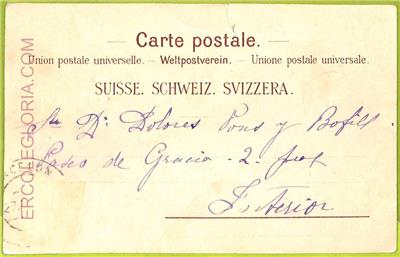 Carte postale.
Union postale universelle. — Weltpostverein. — Unione postale universale.
SUISSE. SCHWEIZ. SVIZZERA.
Sta Da Dolores Pons y Bofill
Paseo de Gracia - 2 -
Interior
ERCOLEGLORIA.COM